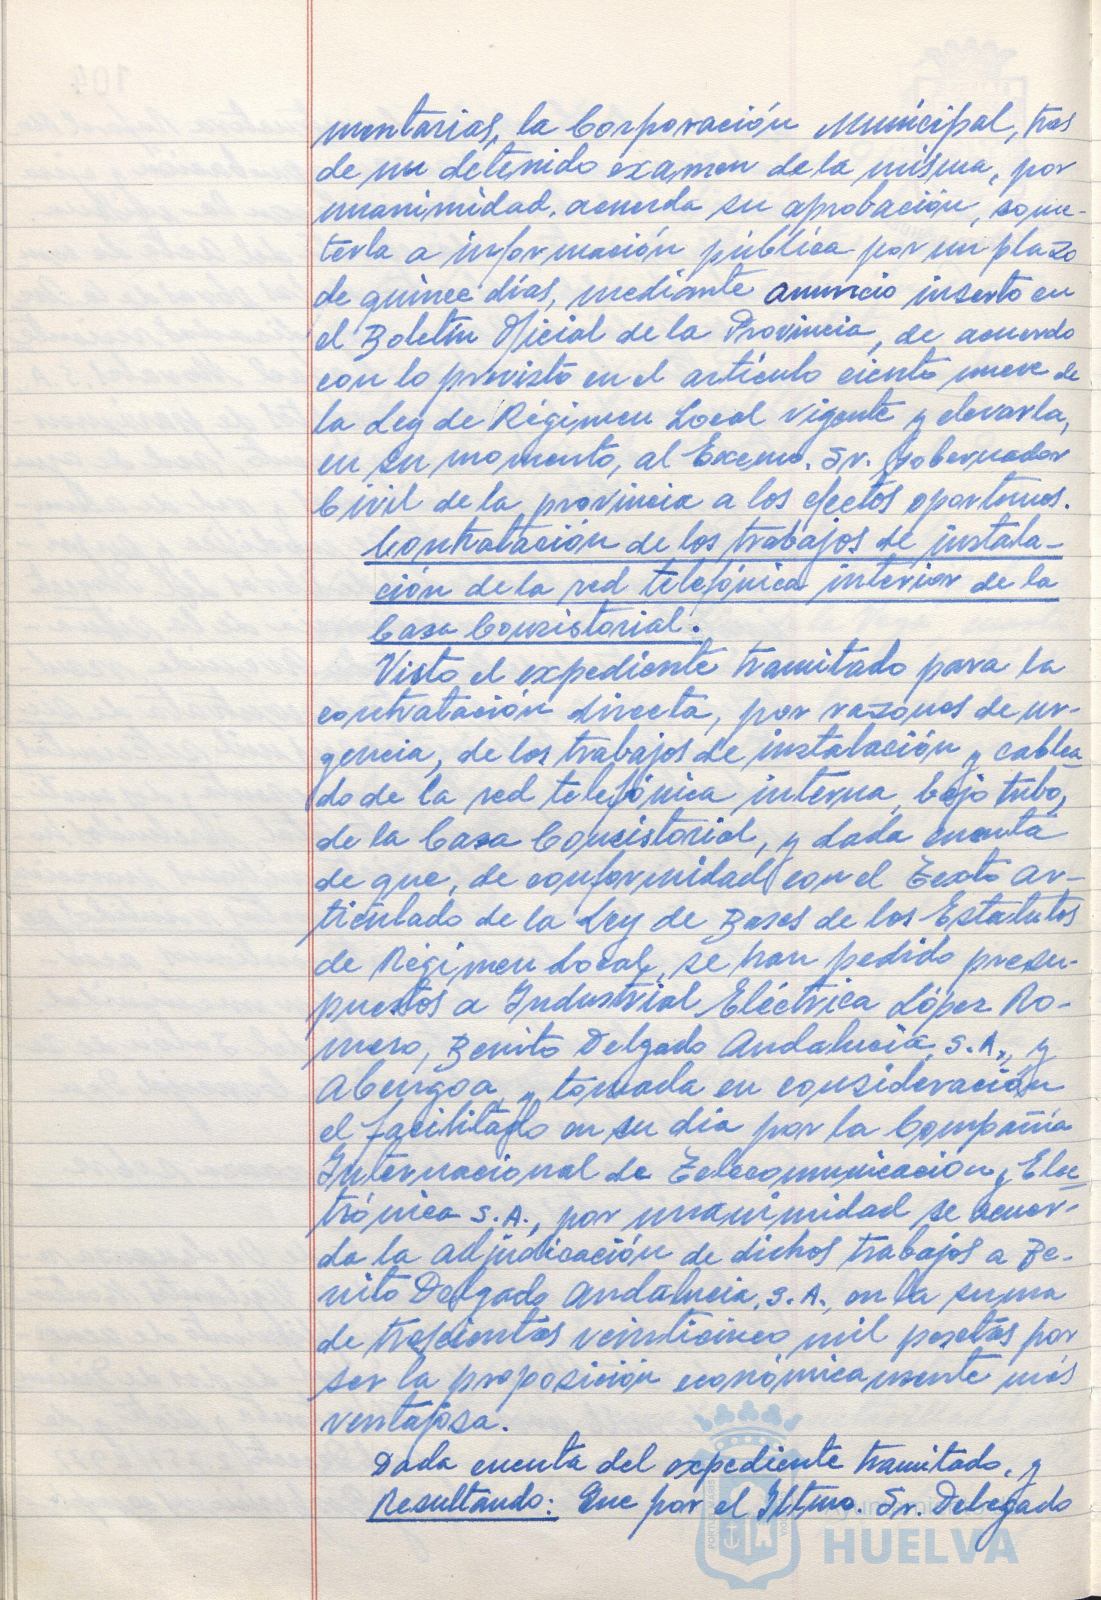 mentarias, la Corporación Municipal, tras
de un detenido examen de la misma, por
unanimidad, acuerda su aprobación, some-
terla a información pública por un plazo
de quince días, mediante anuncio inserto en
el Boletín Oficial de la Provincia, de acuerdo
con lo previsto en el artículo ciento nueve de
la Ley de Régimen Local vigente y elevarla,
en su momento, al Excmo. Sr. Gobernador
Civil de la provincia a los efectos oportunos.
Contratación de los trabajos de instala-
ción de la red telefónica interior de la
Casa Consistorial.
Visto el expediente tramitado para la
contratación directa, por razones de ur-
gencia, de los trabajos de instalación y cablea
do de la red telefónica interna, bajo tubo,
de la Casa Consistorial, y dada cuenta
de que, de conformidad con el Texto Ar-
ticulado de la Ley de Bases de los Estatutos
de Régimen Local, se han pedido presu-
puestos a Industrial Eléctrica López Ro-
mero, Benito Delgado Andalucía, S.A., y
Abengoa, y tomada en consideración
el facilitado en su día por la Compañía
Internacional de Telecomunicacion y Elec
trónica S.A., por unanimidad se acuer-
da la adjudicación de dichos trabajos a Be-
nito Delgado Andalucia, S.A., en la suma
de trescientas veinticinco mil pesetas por
ser la proposición económicamente más
ventajosa.
Dada cuenta del expediente tramitado, y
Resultando: Que por el Iltmo. Sr. Delegado
Ayuntamiento
HUELVA